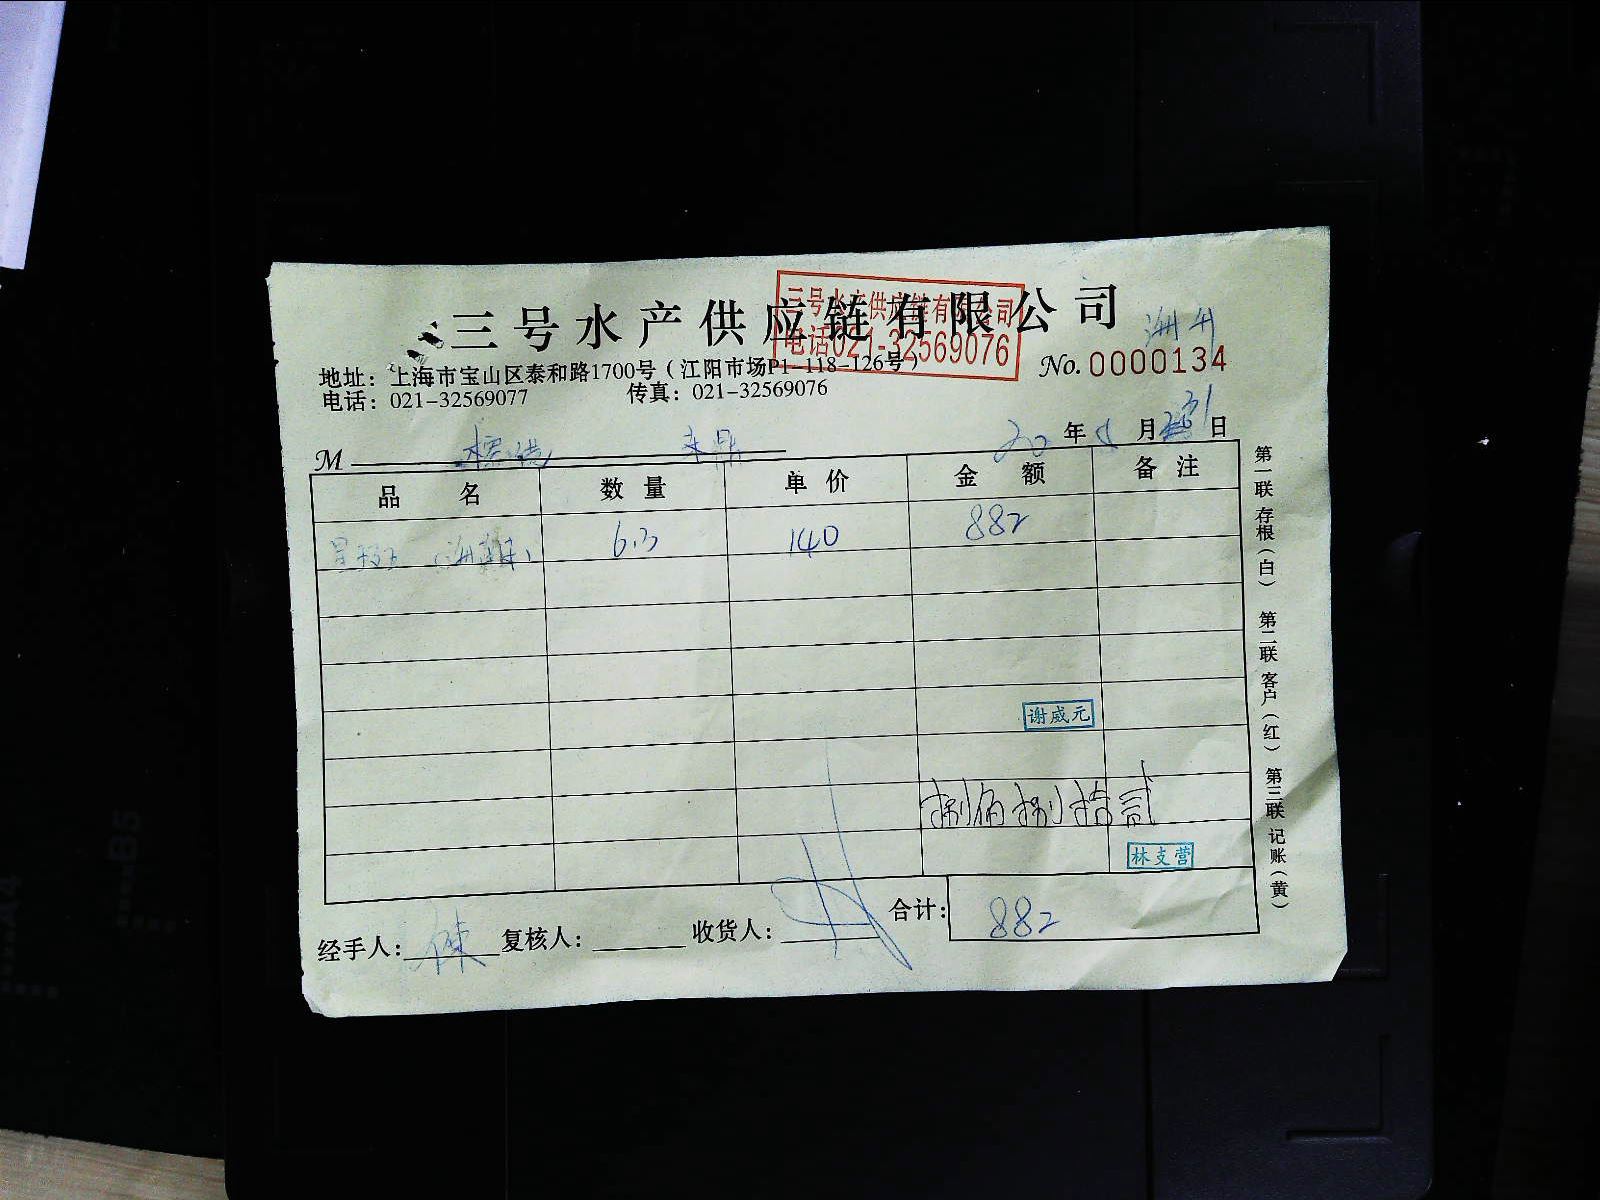 三号水产供应链有限公司
三号水产供应链有限公司
电话021-32569076
No.0000134
地址：上海市宝山区泰和路1700号（江阳市场P1-118-126号）
电话：021-32569077 传真：021-32569076
M
20年8月31日
品名 数量 单价 金额 备注
星斑 6.3 140 882
谢威元
捌佰捌拾贰
林支营
合计：882
经手人： 复核人： 收货人：
第一联 存根（白） 第二联 客户（红） 第三联 记账（黄）
A4
B5